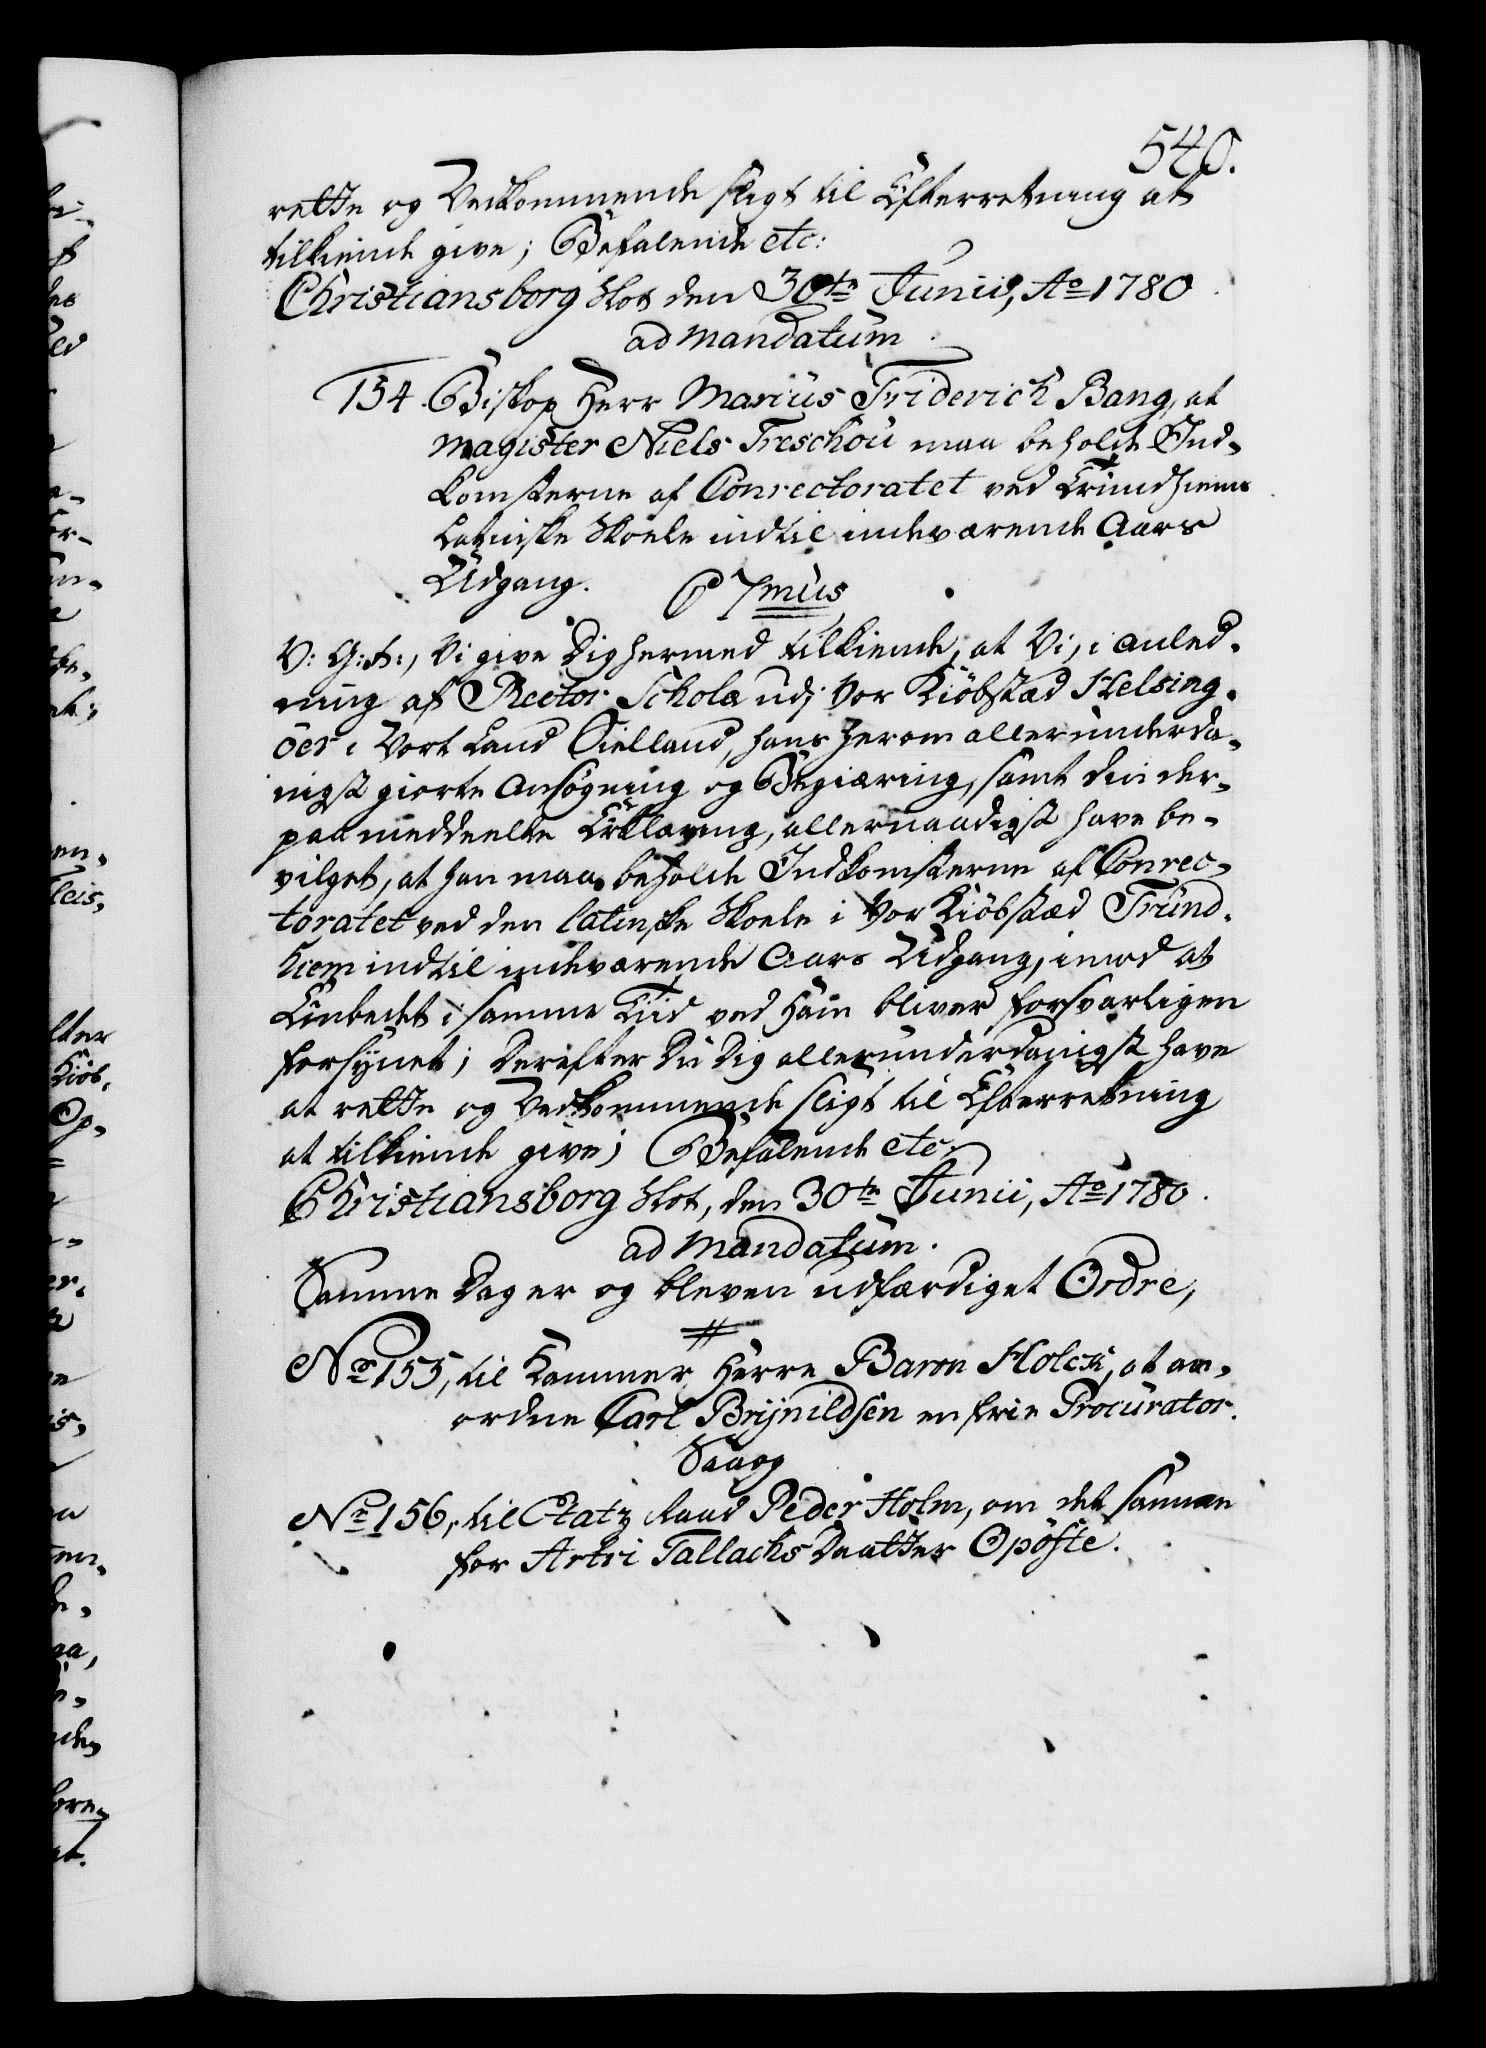 540.
rette og Vedkommende sligt til Efterretning at
tilkiende give; Befalende etc:
Christiansborg Slot den 30te Junii, Ao 1780
ad mandatum.
154. Biskop Herr Marius Friderich Bang, at
Magister Niels Treschou maa beholde Ind-
komsterne af Conrectoratet ved Trundhiems
Latinske Skoele indtil indeværende Aars
Udgang. C 7mus
V: G: A:, Vi give Dig hermed tilkiende, at Vi, i Anled-
ning af Rector Scholæ udj Vor Kiöbstæd Helsing-
öer i Vort Land Sielland, hans herom allerunderda-
nigst giorte Ansögning og Begiæring, samt din der-
paa meddeelte Erklæring, allernaadigst have be-
vilget, at han maa beholde Indkomsterne af Conrec-
toratet ved den latinske Skoele i Vor Kiöbstæd Trund-
hiem indtil indeværende Aars Udgang, imod at
Embedet i samme Tiid ved Ham bliver forsvarligen
forsÿnet; Derefter Du Dig allerunderdanigst have
at rette og Vedkommende sligt til Efterretning
at tilkiende give; Befalende etc.
Christiansborg Slot, den 30te Junii, Ao 1780.
ad mandatum.
Samme Dag er og bleven udfærdiget Ordre,
No 155, til Kammer Herre Baron Holck, at an-
ordne Carl Brÿnildsen en frie Procurator.
Saaog
No 156, til Etatz Raad Peder Holm, om det samme
for Artri Tallachs Daatter Opöfte.
ter
Kiöb-
Op-